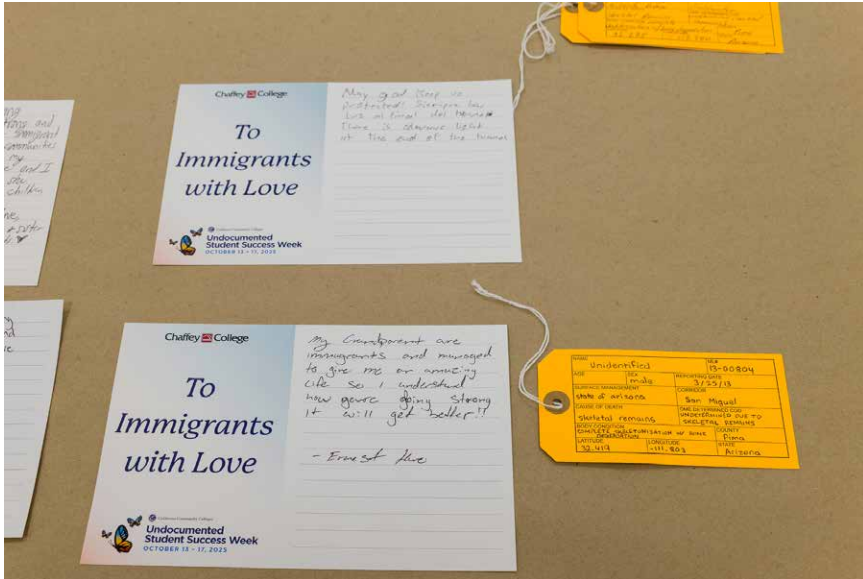 Chaffey College
To
Immigrants
with Love
California Community Colleges
Undocumented
Student Success Week
OCTOBER 13 – 17, 2025
May god keep us
protected! Siempre hay
luz al final del tunnel
There is always light
at the end of the tunnel
and
immigrant
communities
my
and I
children
sister
Chaffey College
To
Immigrants
with Love
California Community Colleges
Undocumented
Student Success Week
OCTOBER 13 – 17, 2025
My Grandparent are
immigrants and managed
to give me an amazing
life so I understand
how youre going strong
it will get better!!
- Ernest
NAME
Unidentified
ML#
13-00804
AGE
SEX
male
REPORTING DATE
3/25/13
SURFACE MANAGEMENT
state of arizona
CORRIDOR
San Miguel
CAUSE OF DEATH
skeletal remains
OME DETERMINED COD
UNDETERMINED DUE TO
SKELETAL REMAINS
BODY CONDITION
COMPLETE SKELETONIZATION W/ BONE
DEGRADATION
COUNTY
Pima
LATITUDE
32.419
LONGITUDE
-111.803
STATE
Arizona